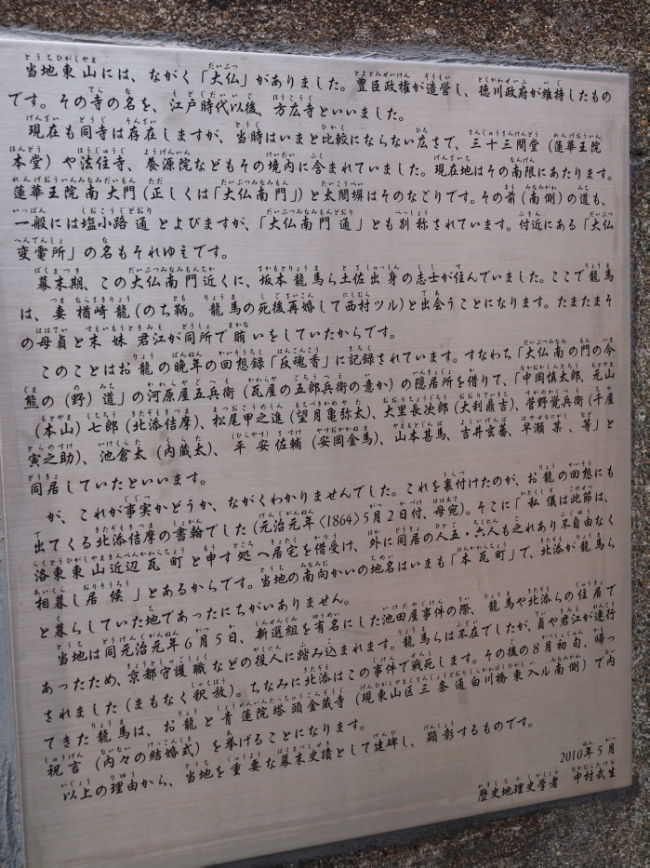 当地東山には、ながく「大仏」がありました。豊臣政権が造営し、徳川政府が維持したもの
です。その寺の名を、江戸時代以後、方広寺といいました。
現在も同寺は存在しますが、当時はいまと比較にならない広さで、三十三間堂(蓮華王院
本堂)や法住寺、養源院などもその境内に含まれていました。現在地はその南限にあたります。
蓮華王院南大門(正しくは「大仏南門」)と太閤塀はそのなごりです。その前(南側)の道も、
一般には塩小路通とよびますが、「大仏南門通」とも別称されています。付近にある「大仏
変電所」の名もそれゆえです。
幕末期、この大仏南門近くに、坂本龍馬ら土佐出身の志士が住んでいました。ここで龍馬
は、妻楢崎龍(のち鞆。龍馬の死後再婚して西村ツル)と出会うことになります。たまたまそ
の母貞と末妹君江が同所で賄いをしていたからです。
このことはお龍の晩年の回想録「反魂香」に記録されています。すなわち「大仏南の門の今
熊の(野)道」の河原屋五兵衛(瓦屋の五郎兵衛の意か)の隠居所を借りて、「中岡慎太郎、元山
(本山)七郎(北添佶摩)、松尾甲之進(望月亀弥太)、大里長次郎(大利鼎吉)、菅野覚兵衛(千屋
寅之助)、池倉太(内蔵太)、平安佐輔(安岡金馬)、山本甚馬、吉井玄蕃、早瀬某、等」と
同居していたといいます。
が、これが事実かどうか、ながくわかりませんでした。これを裏付けたのが、お龍の回想にも
出てくる北添佶摩の書翰でした(元治元年〈1864〉5月2日付、母宛)。そこに「私儀は此節は、
洛東東山近辺瓦町と申す処へ居宅を借受け、外に同居の人五・六人も之れあり不自由なく
相暮し居候」とあるからです。当地の南向かいの地名はいまも「本瓦町」で、北添が龍馬ら
と暮らしていた地であったにちがいありません。
当地は同元治元年6月5日、新選組を有名にした池田屋事件の際、龍馬や北添らの住居で
あったため、京都守護職などの役人に踏み込まれます。龍馬らは不在でしたが、貞や君江が連行
されました(まもなく釈放)。ちなみに北添はこの事件で戦死します。その後の8月初旬、帰っ
てきた龍馬は、お龍と青蓮院塔頭金蔵寺(現東山区三条通白川橋東入ル南側)で内
祝言(内々の結婚式)を挙げることになります。
以上の理由から、当地を重要な幕末史蹟として建碑し、顕彰するものです。
2010年5月
歴史地理史学者 中村武生